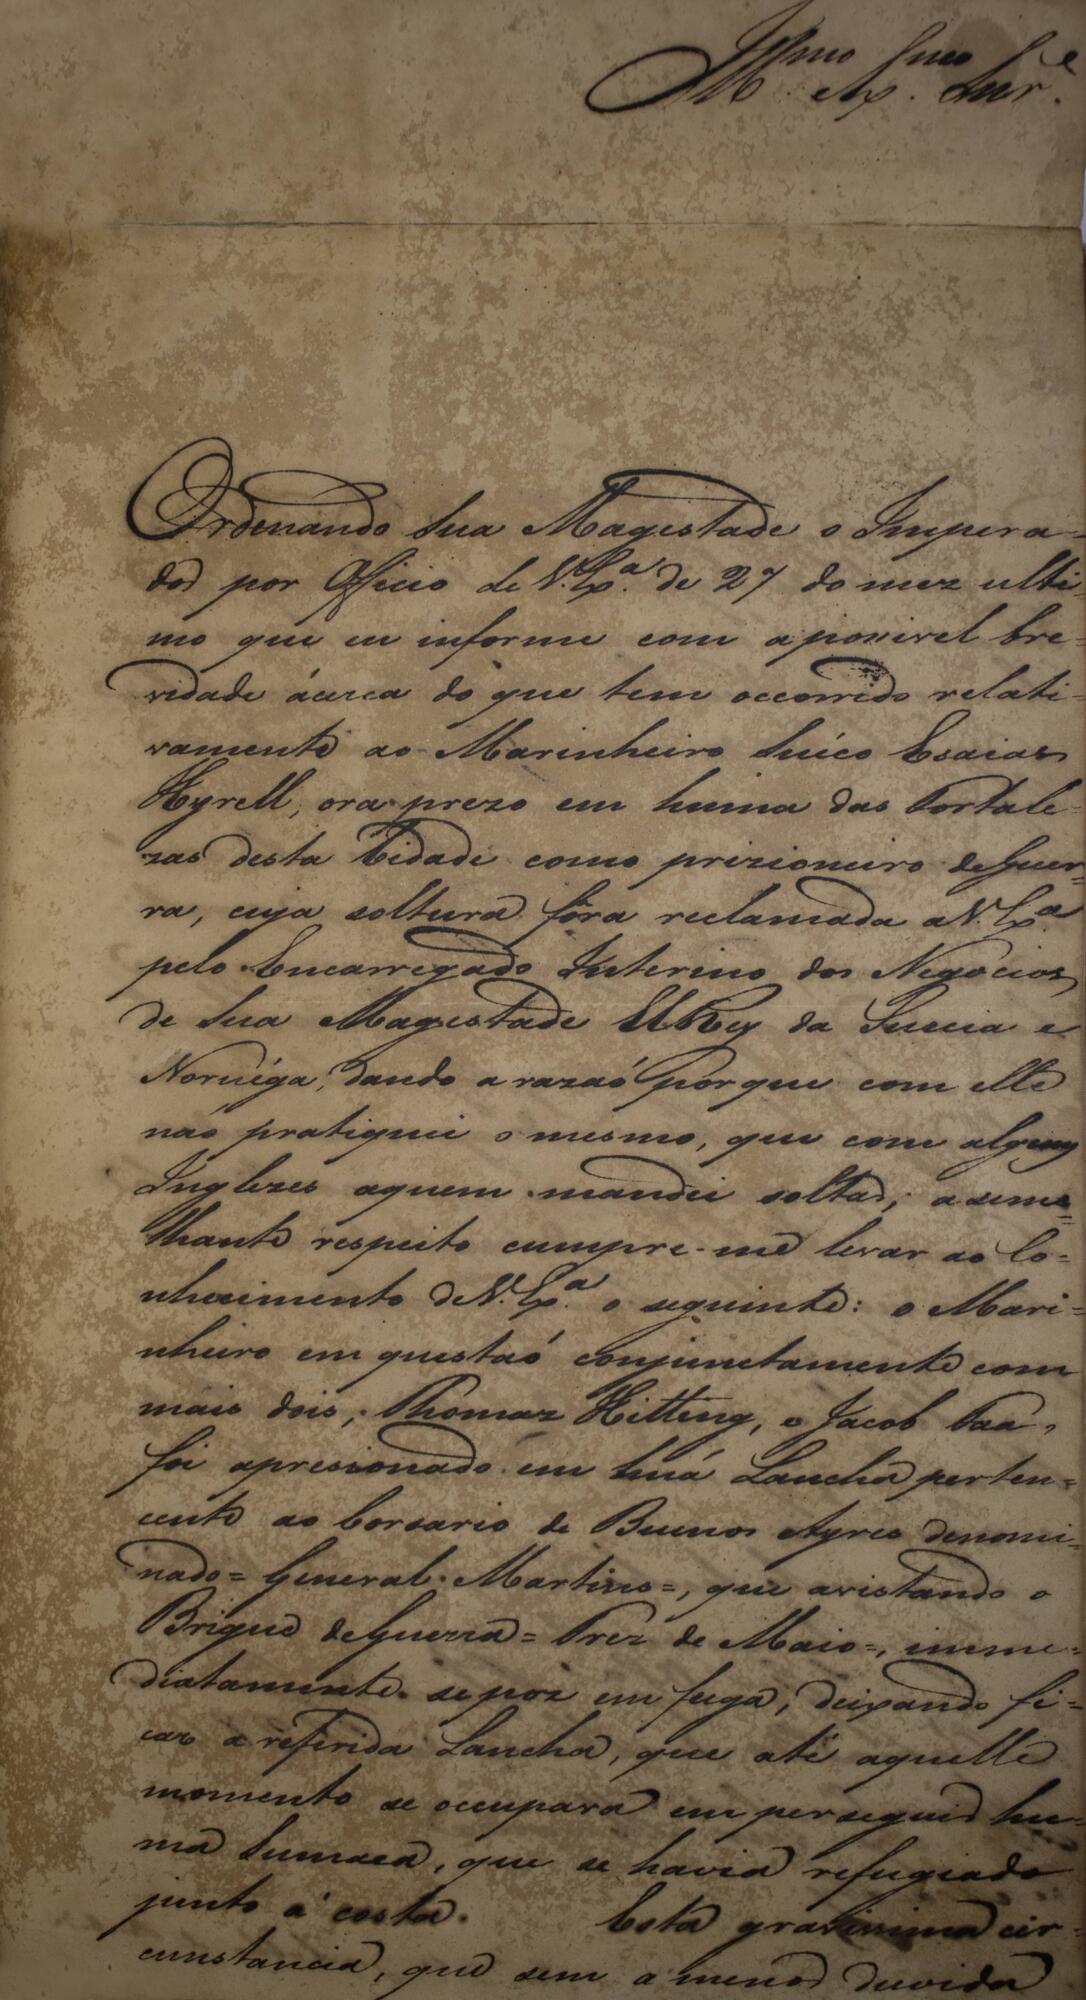 Illmo Exmo Snr.e
Ordenando Sua Magestade o Impera-
dor por Officio de V. Ex.a de 27 do mez ulti-
mo que eu informe com a possivel bre-
vidade ácerca do que tem occorrido relati-
vamente ao Marinheiro Suéco Esaias
Hyrell, ora prezo em huma das Fortale-
zas desta Cidade como prizioneiro de Guer-
ra, cuja soltura fôra reclamada a V. Ex.a
pelo Encarregado Interino dos Negocios
de Sua Magestade ElRey da Suecia e
Noruéga, dando a razaõ porque com elle
naõ pratiquei o mesmo, que com alguns
Inglezes aquem mandei soltar; a seme-
lhante respeito cumpre-me levar ao Co-
nhecimento de V. Ex.a o seguinte: o Mari-
nheiro em questaõ conjunctamente com
mais dois, Thomaz Hitting, e Jacob
foi apresionado em huã Lancha perten-
cente ao Corsario de Buenos Ayres denomi-
nado = General Martins =, que avistando o
Brigue de Guerra = Trez de Maio =, imme-
diatamente se poz em fuga, deixando fi-
car a referida Lancha, que até aquelle
momento se occupara em perseguir hu-
ma Sumaca, que se havia refugiado
junto á costa. Esta gravissima cir-
cunstancia, que sem a menor duvida